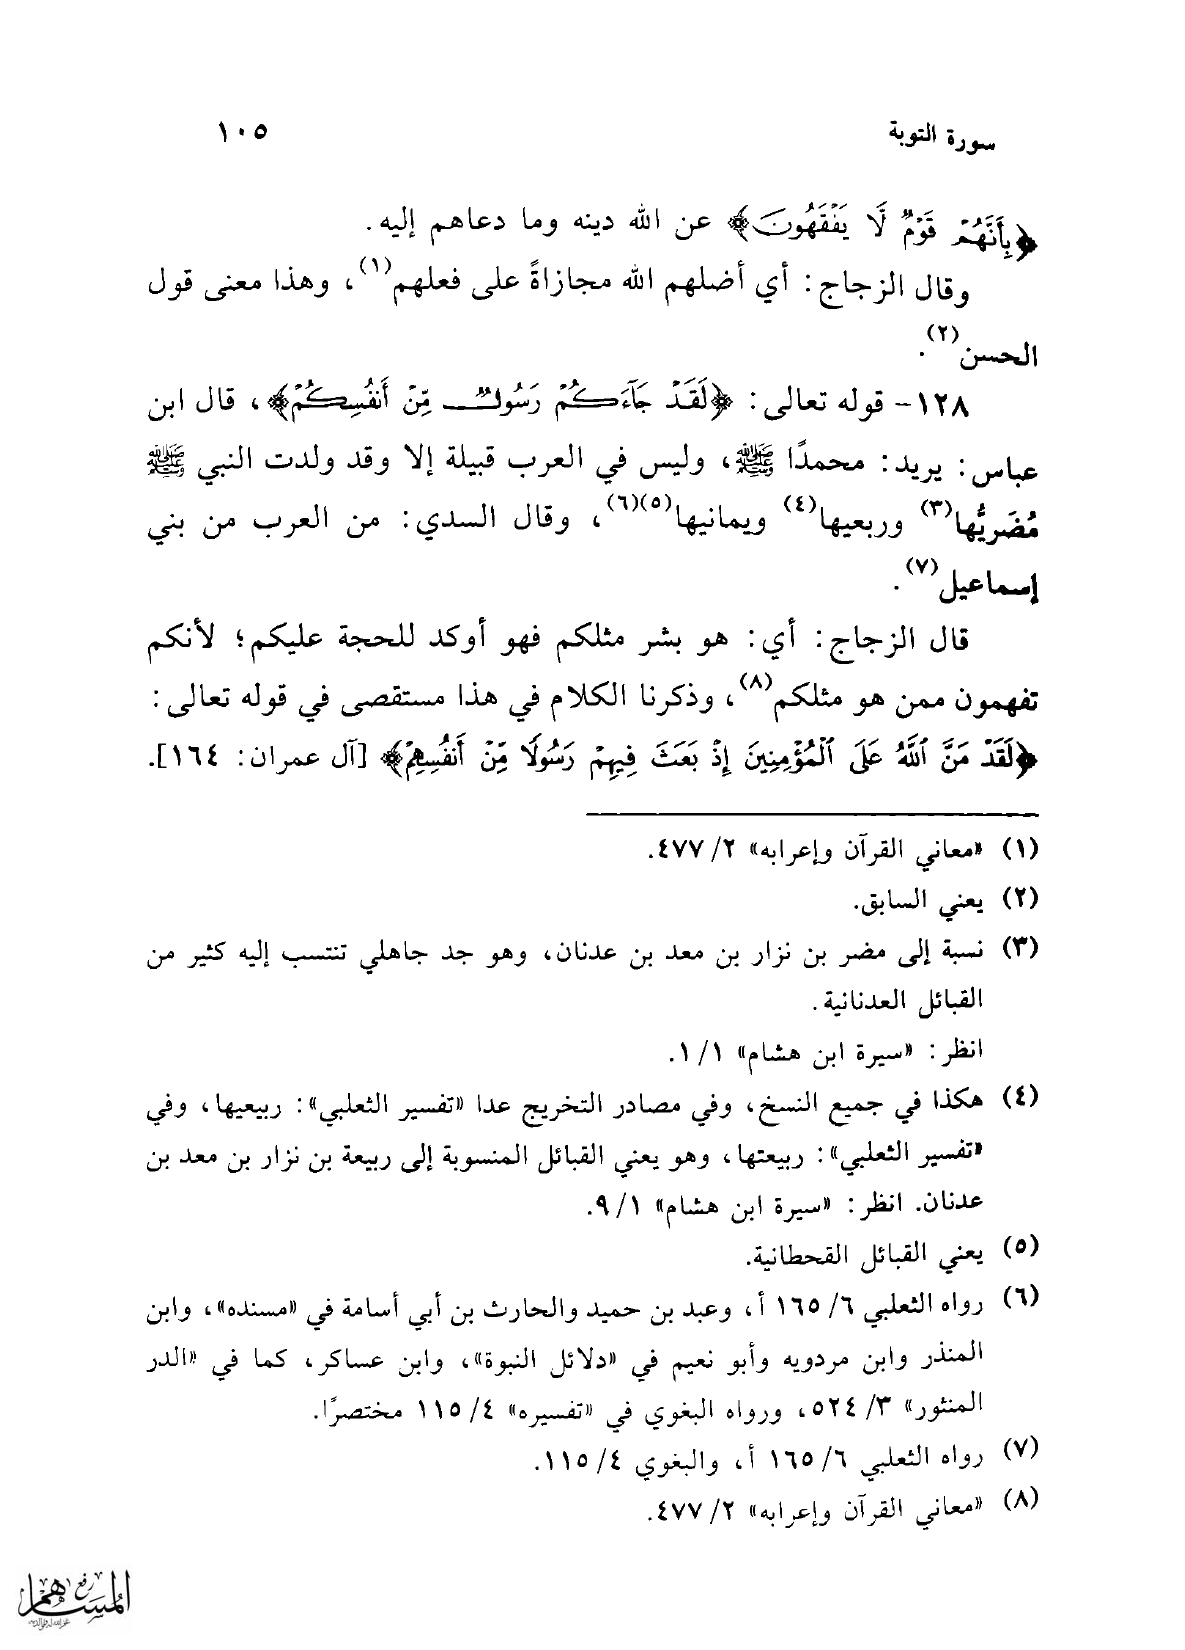 سورة التوبة ١٠٥
﴿بِأَنَّهُمْ قَوْمٌ لَّا يَفْقَهُونَ﴾ عن الله دينه وما دعاهم إليه.
وقال الزجاج: أي أضلهم الله مجازاةً على فعلهم(١)، وهذا معنى قول
الحسن(٢).
١٢٨- قوله تعالى: ﴿لَقَدْ جَآءَكُمْ رَسُولٌ مِّنْ أَنفُسِكُمْ﴾، قال ابن
عباس: يريد: محمدًا ﷺ، وليس في العرب قبيلة إلا وقد ولدت النبي ﷺ
مُضَريُّها(٣) وربعيها(٤) ويمانيها(٥)(٦)، وقال السدي: من العرب من بني
إسماعيل(٧).
قال الزجاج: أي: هو بشر مثلكم فهو أوكد للحجة عليكم؛ لأنكم
تفهمون ممن هو مثلكم(٨)، وذكرنا الكلام في هذا مستقصى في قوله تعالى:
﴿لَقَدْ مَنَّ ٱللَّهُ عَلَى ٱلْمُؤْمِنِينَ إِذْ بَعَثَ فِيهِمْ رَسُولًا مِّنْ أَنفُسِهِمْ﴾ [آل عمران: ١٦٤].
(١) «معاني القرآن وإعرابه» ٢/ ٤٧٧.
(٢) يعني السابق.
(٣) نسبة إلى مضر بن نزار بن معد بن عدنان، وهو جد جاهلي تنتسب إليه كثير من
القبائل العدنانية.
انظر: «سيرة ابن هشام» ١/ ١.
(٤) هكذا في جميع النسخ، وفي مصادر التخريج عدا «تفسير الثعلبي»: ربيعيها، وفي
«تفسير الثعلبي»: ربيعتها، وهو يعني القبائل المنسوبة إلى ربيعة بن نزار بن معد بن
عدنان. انظر: «سيرة ابن هشام» ١/ ٩.
(٥) يعني القبائل القحطانية.
(٦) رواه الثعلبي ٦/ ١٦٥ أ، وعبد بن حميد والحارث بن أبي أسامة في «مسنده»، وابن
المنذر وابن مردويه وأبو نعيم في «دلائل النبوة»، وابن عساكر، كما في «الدر
المنثور» ٣/ ٥٢٤، ورواه البغوي في «تفسيره» ٤/ ١١٥ مختصرًا.
(٧) رواه الثعلبي ٦/ ١٦٥ أ، والبغوي ٤/ ١١٥.
(٨) «معاني القرآن وإعرابه» ٢/ ٤٧٧.